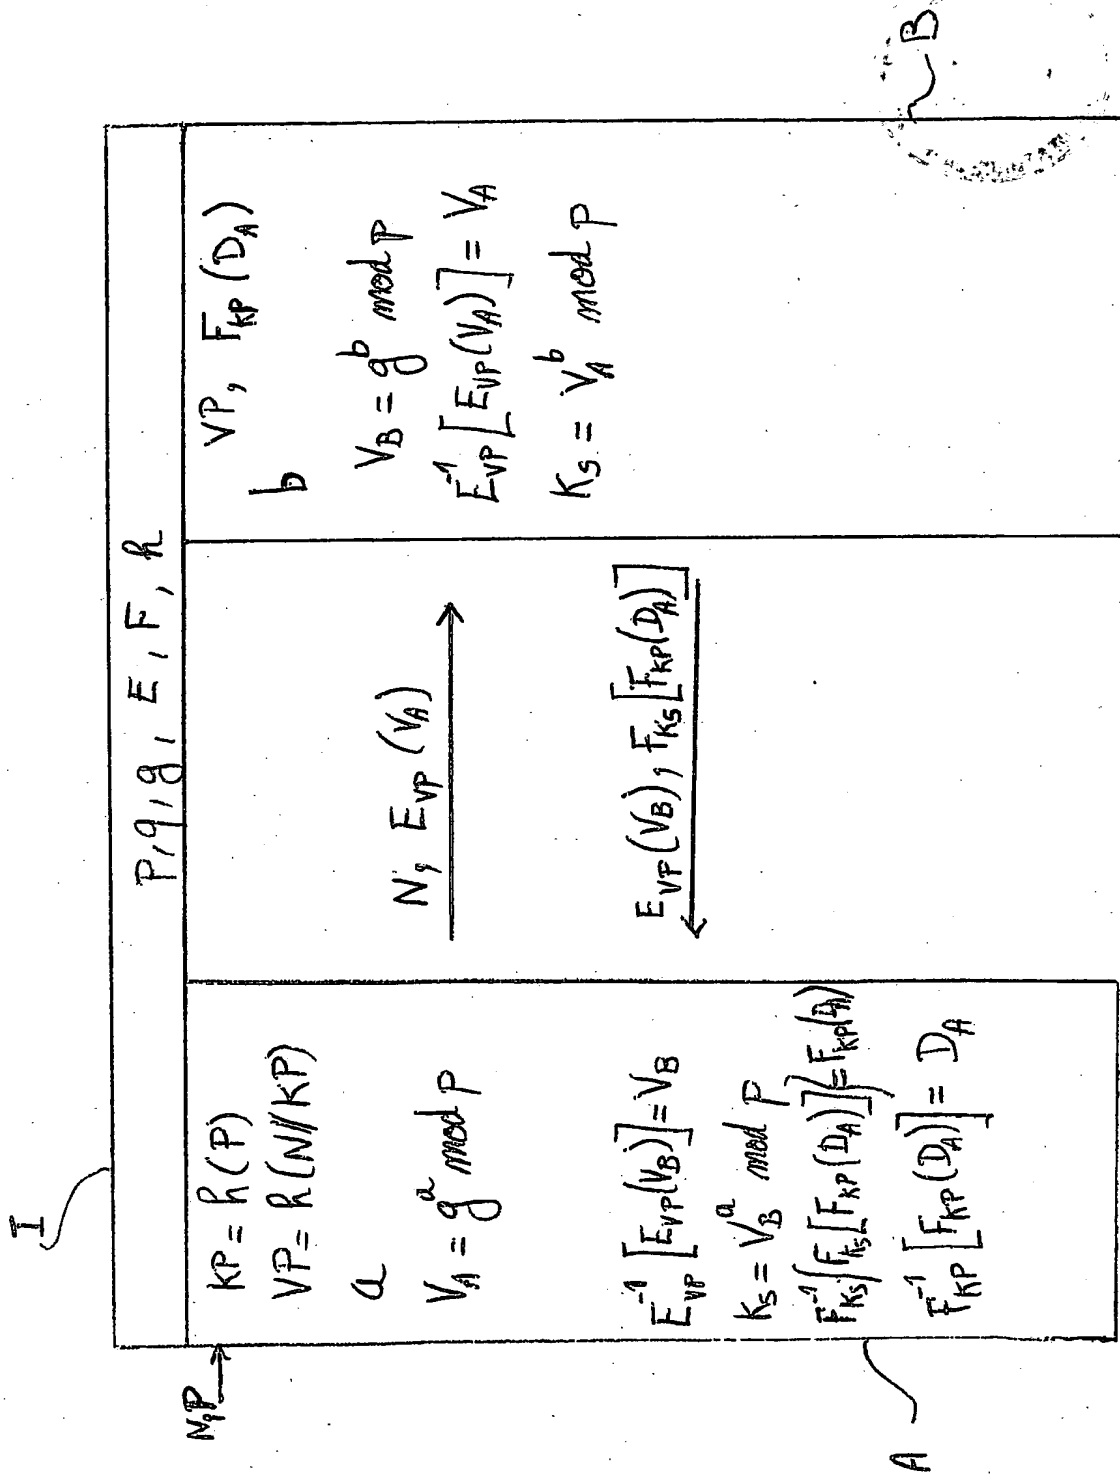 I
p, q, g, E, F, h
N,P
KP = h(P)
VP = h(N//KP)
a
V_A = g^a mod p
E_VP^-1 [E_VP(V_B)] = V_B
K_S = V_B^a mod p
F_KS^-1 {F_KS [F_KP(D_A)]} = F_KP(D_A)
F_KP^-1 [F_KP(D_A)] = D_A
A
N, E_VP (V_A)
E_VP(V_B), F_KS [F_KP(D_A)]
VP, F_KP (D_A)
b
V_B = g^b mod p
E_VP^-1 [E_VP(V_A)] = V_A
K_S = V_A^b mod p
B